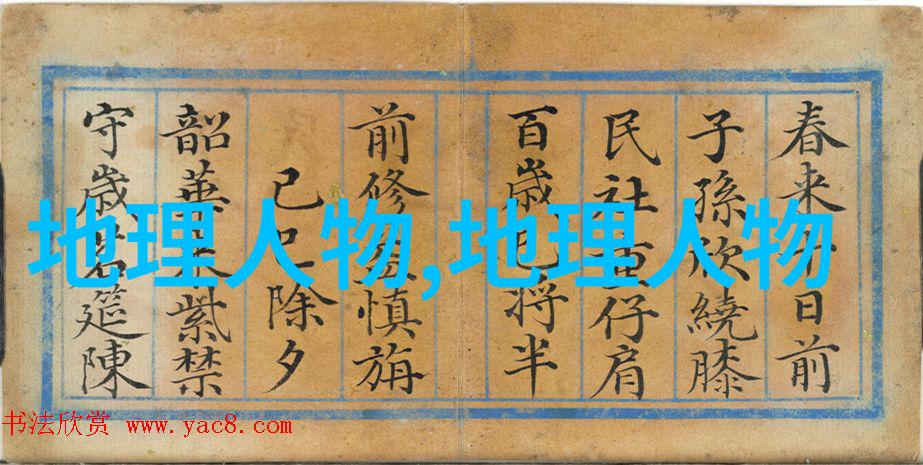 春来日前
子孫欣繞膝
民社仔肩
百歳已将半
前修益慎旃
己除夕
韶華紫禁
守歳筵陳
地理人物,地理人物
书法欣赏 www.yac8.com